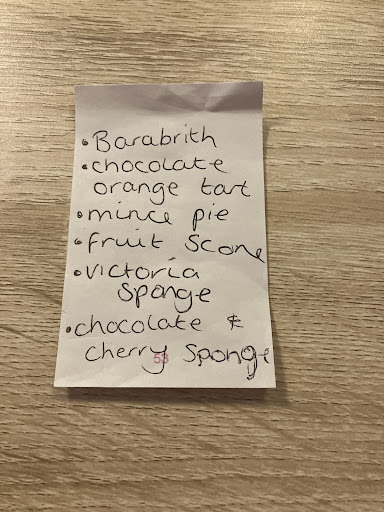 • Barabrith
• chocolate
orange tart
• mince pie
• fruit scone
• victoria
sponge
• chocolate &
cherry sponge
53